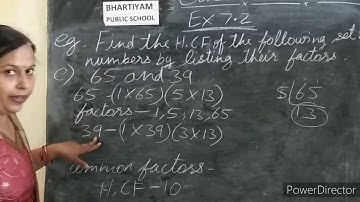 BHARTIYAM
PUBLIC SCHOOL
Ex 7.2
eg. Find the H.C.F of the following set
numbers by listing their factors.
c) 65 and 39
65 - (1 x 65) (5 x 13)
5 65
13
factors - 1, 5, 13, 65
39 - (1 x 39) (3 x 13)
common factors -
H.C.F - 10
PowerDirector